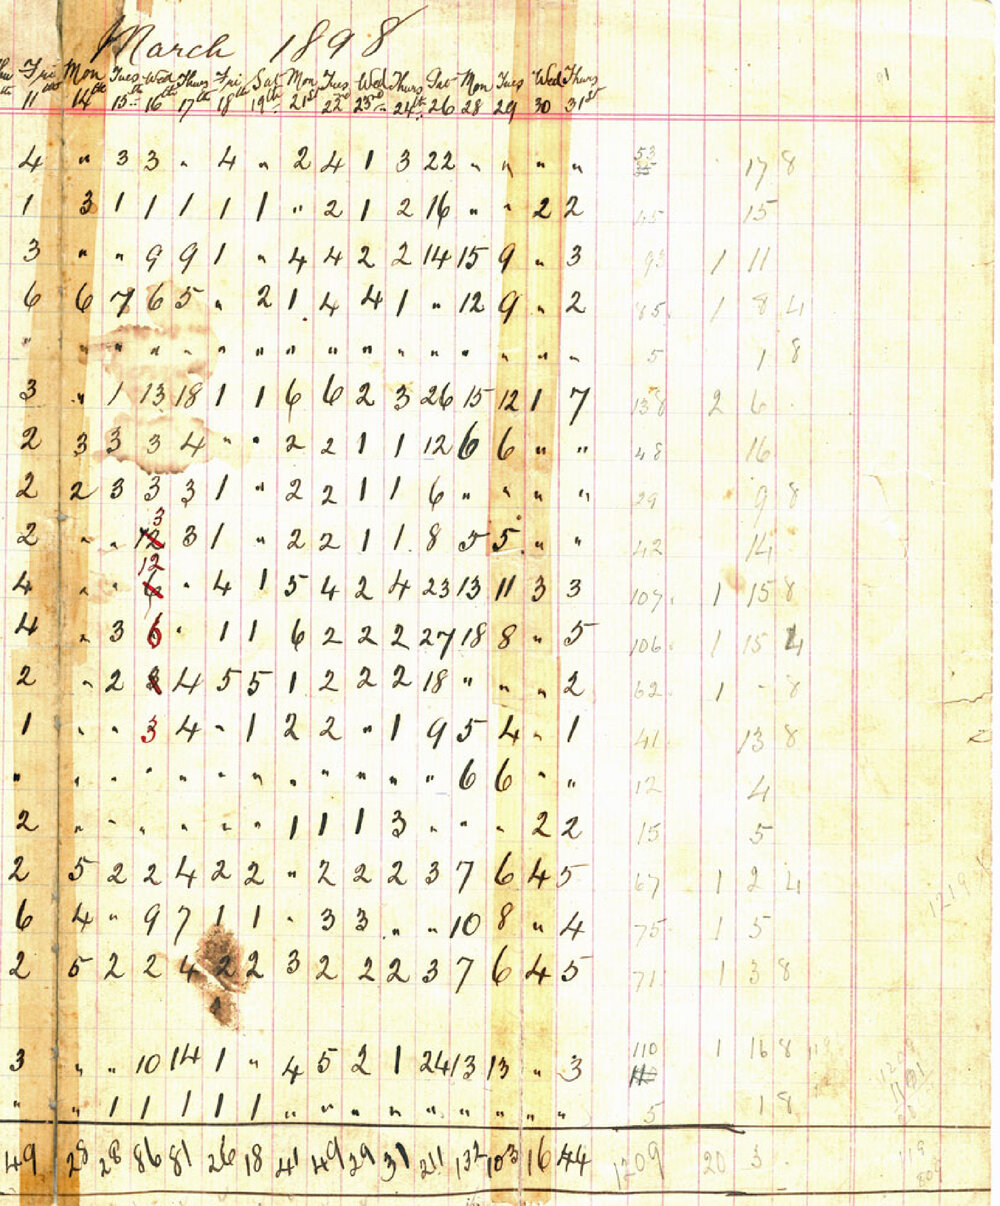 March 1898
Fri Mon Tues Wed Thurs Fri Sat Mon Tues Wed Thurs Sat Mon Tues Wed Thurs
11th 14th 15th 16th 17th 18th 19th 21st 22nd 23rd 24th 26 28 29 30 31st
4 " 3 3 " 4 " 2 4 1 3 22 " " " " 53 17 8
1 3 1 1 1 1 1 " 2 1 2 16 " " 2 2 45 15
3 " " 9 9 1 " 4 4 2 2 14 15 9 " 3 93 1 11
6 6 7 6 5 " 2 1 4 4 1 " 12 9 " 2 85 1 8 4
" " " " " " " " " " " " " " " " 5 1 8
3 " 1 13 18 1 1 6 6 2 3 26 15 12 1 7 138 2 6
2 3 3 3 4 " " 2 2 1 1 12 6 6 " " 48 16
2 2 3 3 3 1 " 2 2 1 1 6 " " " " 29 9 8
3
2 " " 12 3 1 " 2 2 1 1 8 5 5 " " 42 14
12
4 " " 6 " 4 1 5 4 2 4 23 13 11 3 3 107 1 15 8
4 " 3 6 " 1 1 6 2 2 2 27 18 8 " 5 106 1 15 4
2 " 2 4 5 5 1 2 2 2 18 " " " 2 62 1 - 8
1 " " 3 4 " 1 2 2 " 1 9 5 4 " 1 41 13 8
" " " " " " " " " " " " 6 6 " " 12 4
2 " " " " " " 1 1 1 3 " " " 2 2 15 5
2 5 2 2 4 2 2 " 2 2 2 3 7 6 4 5 67 1 2 4
6 4 " 9 7 1 1 " 3 3 " " 10 8 " 4 75 1 5
2 5 2 2 4 2 2 3 2 2 2 3 7 6 4 5 71 1 3 8
3 " " 10 14 1 " 4 5 2 1 24 13 13 " 3 110 1 16 8
" " 1 1 1 1 1 " " " " " " " " " 5 1 8
49 28 28 86 81 26 18 41 49 29 31 211 132 103 16 44 1209 20 3